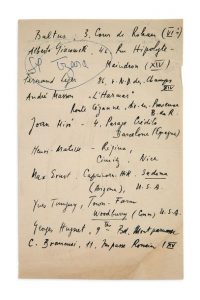 Balthus, 3. Cour de Rohan (VIe)
Alberto Giacometti - 46, Rue Hipolyte-
Maindron (XIV)
Fernand Léger 86, r. N.D. des Champs
XIV
André Masson "L'Harmas"
Route Aix-en-Provence
B. du R.
Joan Miró - 4, Pasage Crédito
Barcelone (Espagne)
Henri Matisse - Regina,
Cimiez, Nice
Max Ernst, Capricorn Hill Sedona
(Arizona), U.S.A.
Yves Tanguy, Town-Farm
Woodbury (Conn) U.S.A.
Georges Hugnet, 9 Bd. Montparnasse
C. Brancusi, 11, Impasse Ronsin (XV)